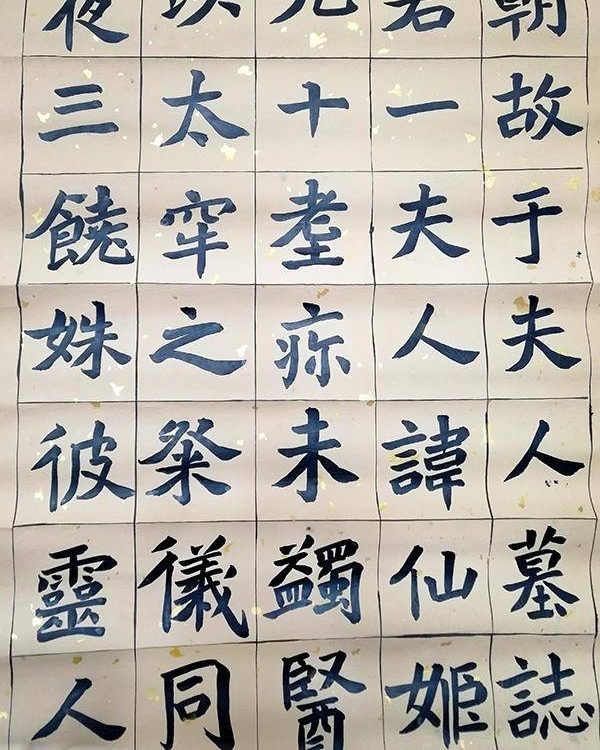 朝故于夫人墓誌
一夫人諱仙姬
九十耋疹未蠲醫
以太窂之祭儀同
夜三饒姝彼靈人